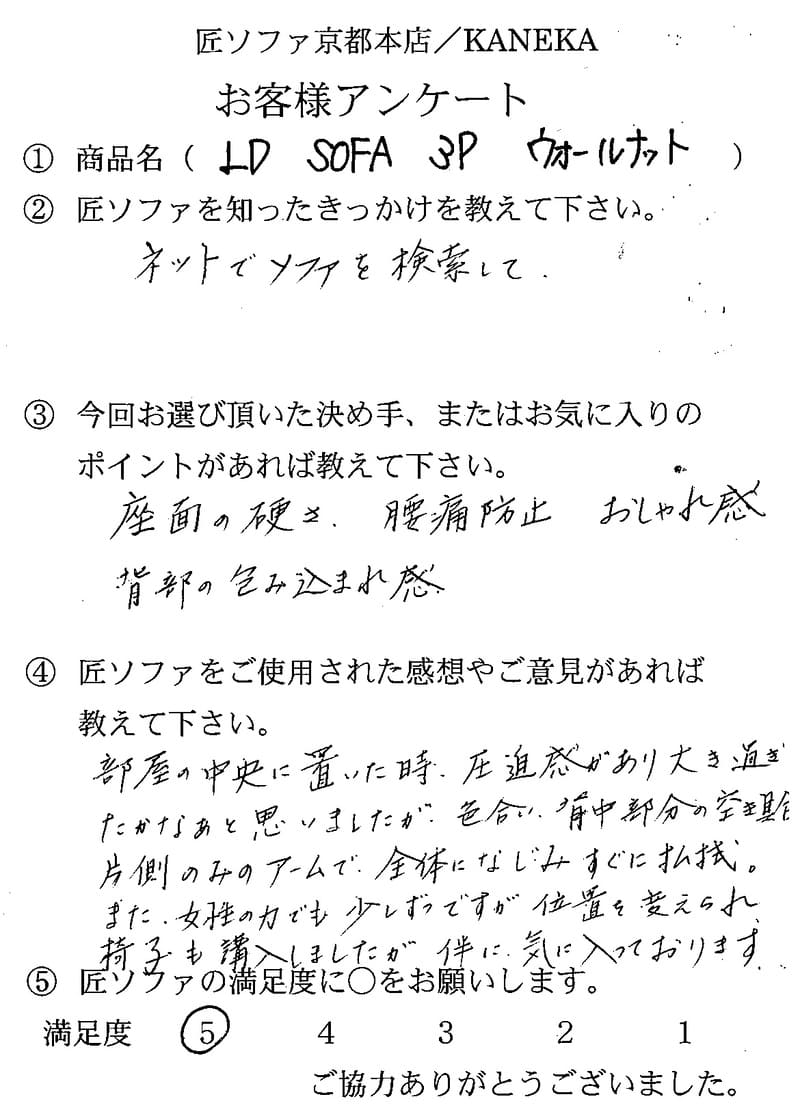 匠ソファ京都本店／KANEKA
お客様アンケート
① 商品名（ LD SOFA 3P ウォールナット ）
② 匠ソファを知ったきっかけを教えて下さい。
ネットでソファを検索して.
③ 今回お選び頂いた決め手、またはお気に入りの
ポイントがあれば教えて下さい。
座面の硬さ. 腰痛防止 おしゃれ感
背部の包み込まれ感
④ 匠ソファをご使用された感想やご意見があれば
教えて下さい。
部屋の中央に置いた時、圧迫感があり大き過ぎ
たかなぁと思いましたが、色合い、背中部分の空き具合
片側のみのアームで、全体になじみすぐに払拭。
また、女性の力でも少しずつですが位置を変えられ、
椅子も講入しましたが伴に、気に入っております.
⑤ 匠ソファの満足度に〇をお願いします。
満足度 5 4 3 2 1
ご協力ありがとうございました。